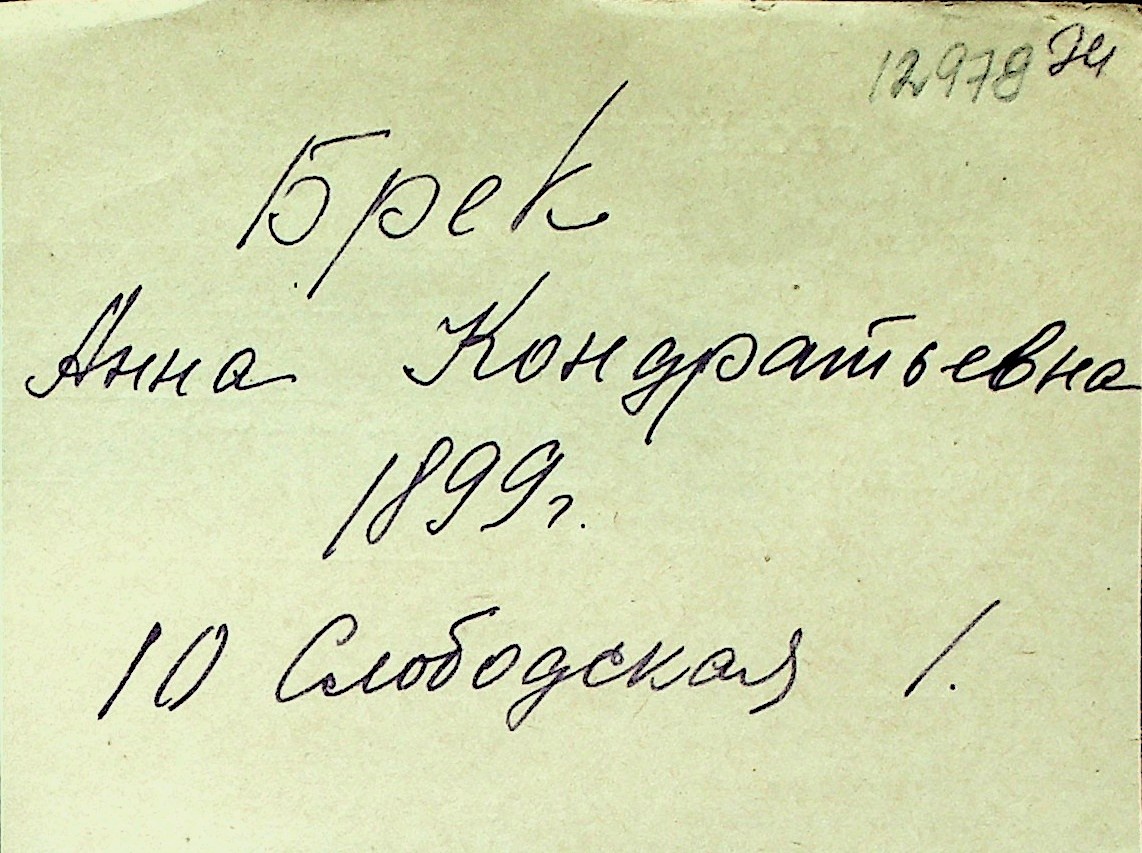 12978
Брек
Анна Кондратьевна
1899г.
10 Слободская 1.